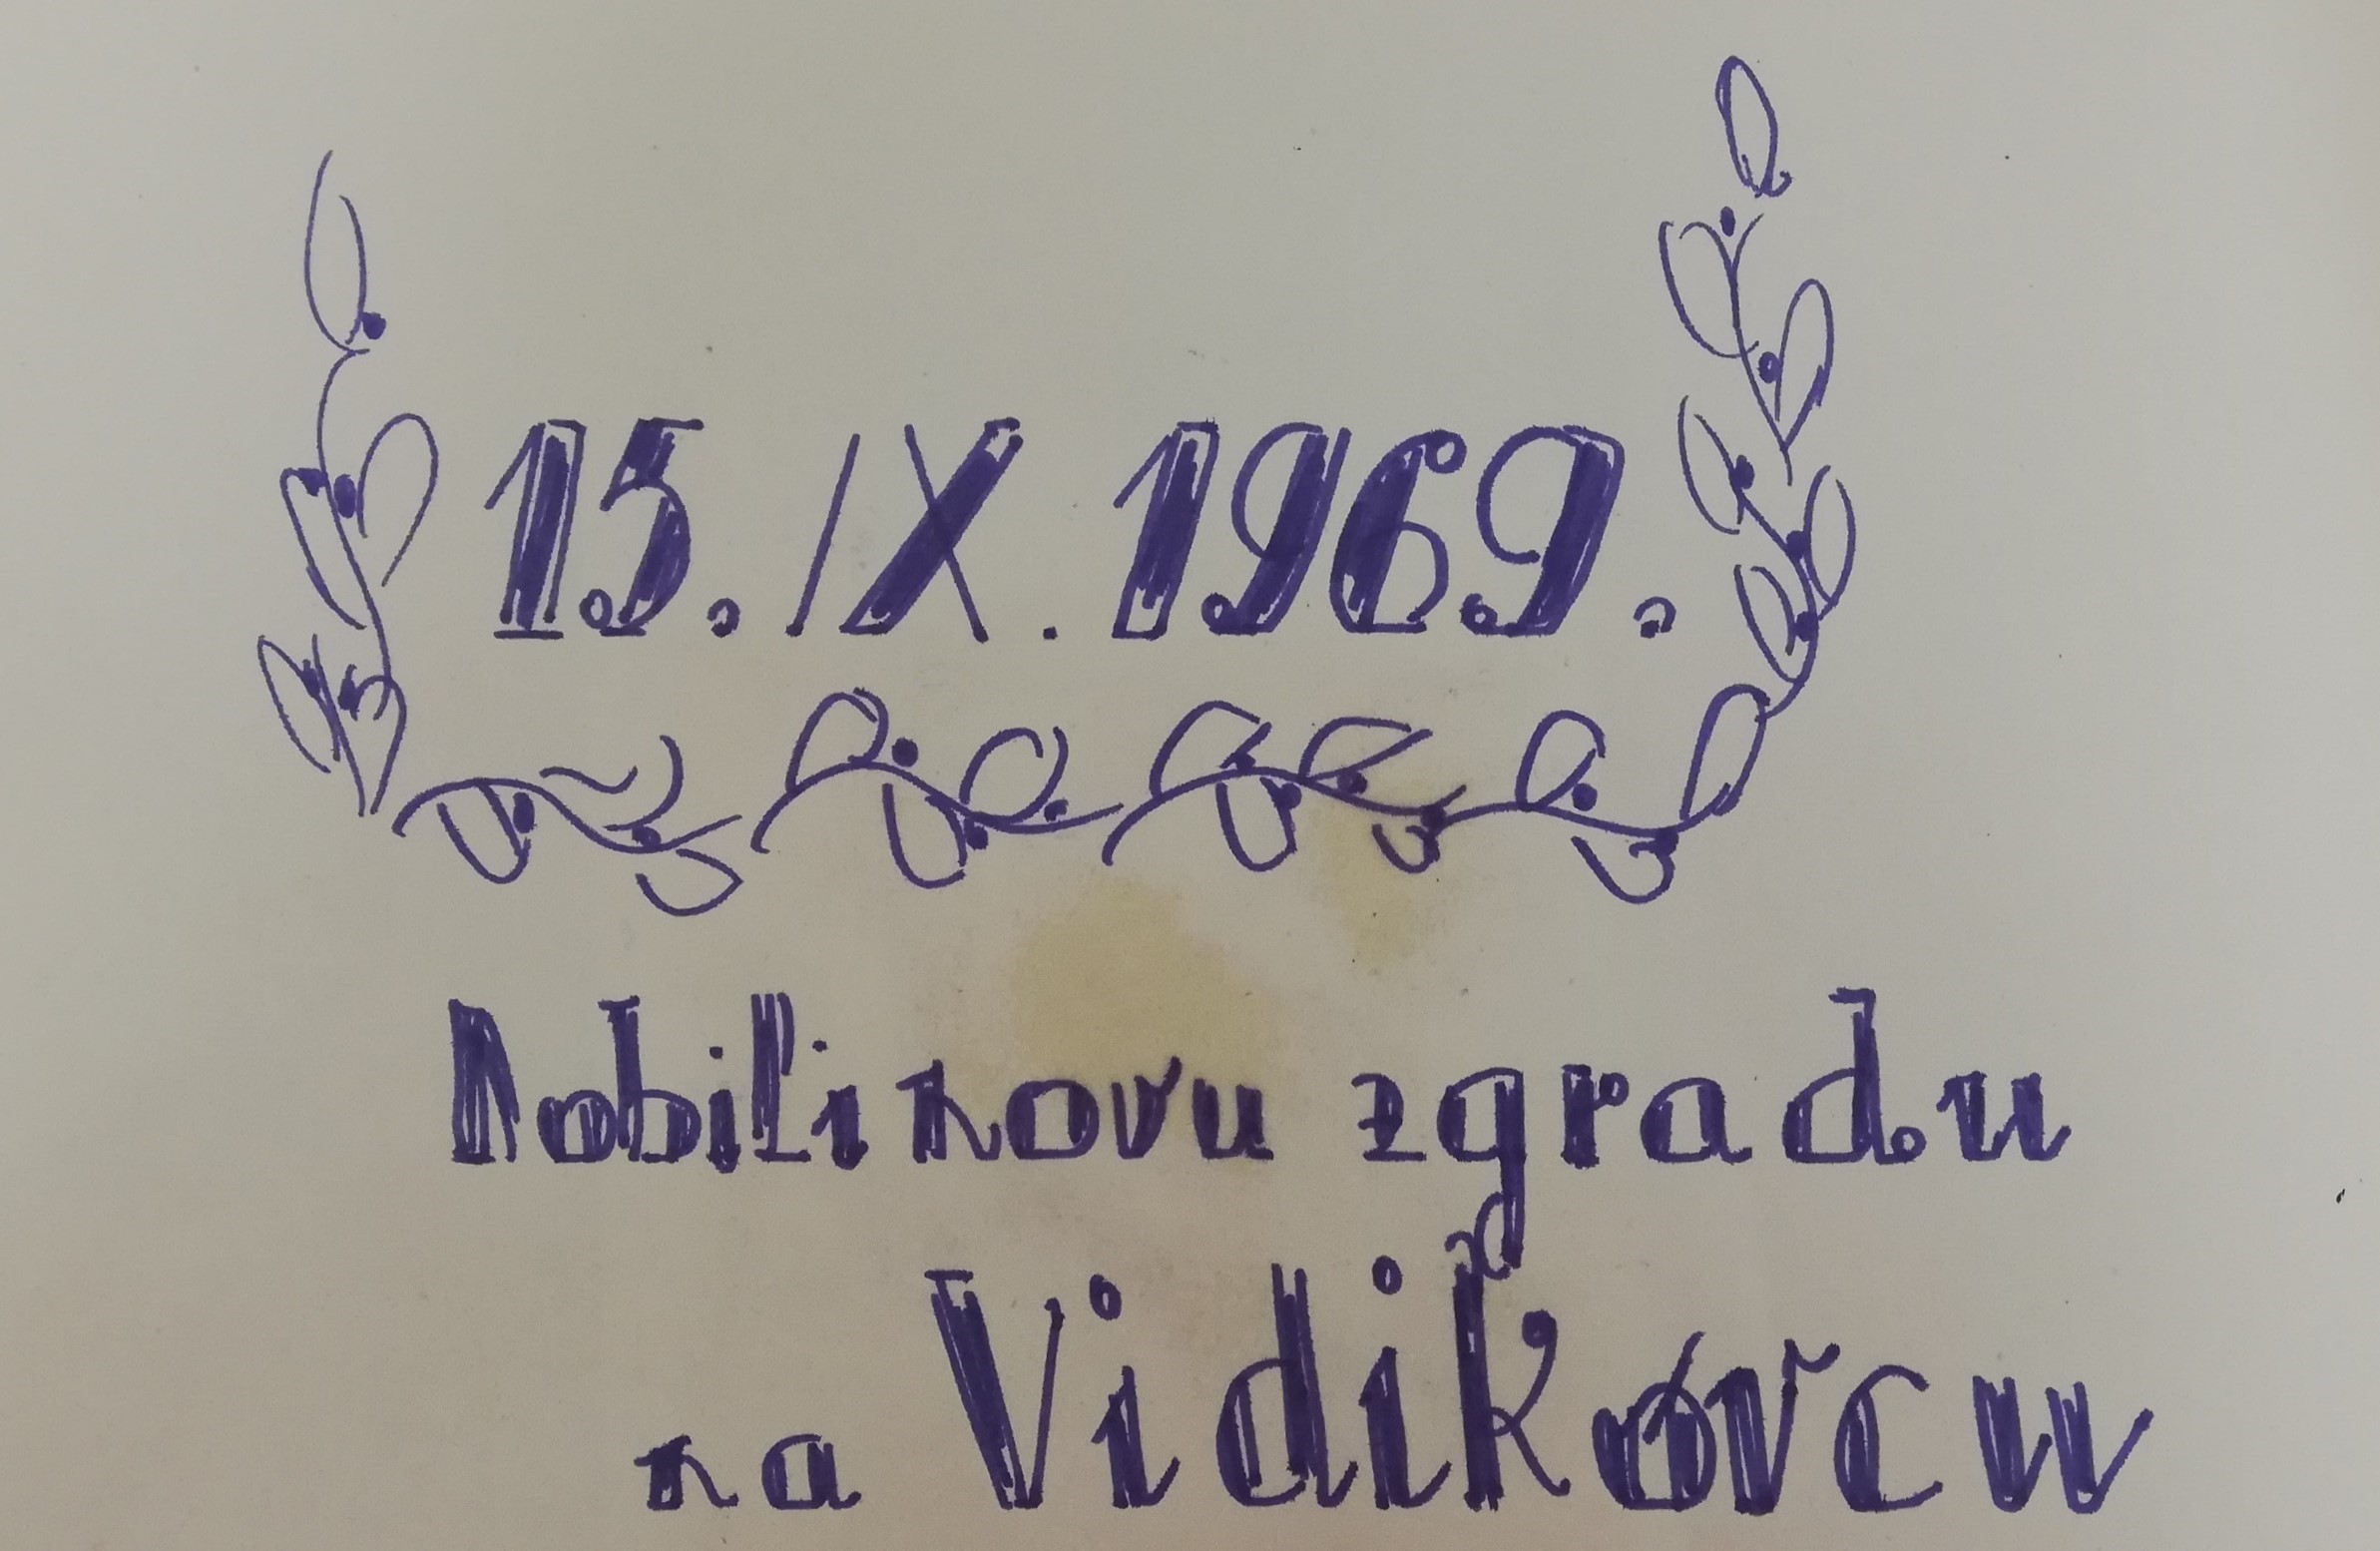 15. IX. 1969.
Nobilinovu zgradu
na Vidikovcu